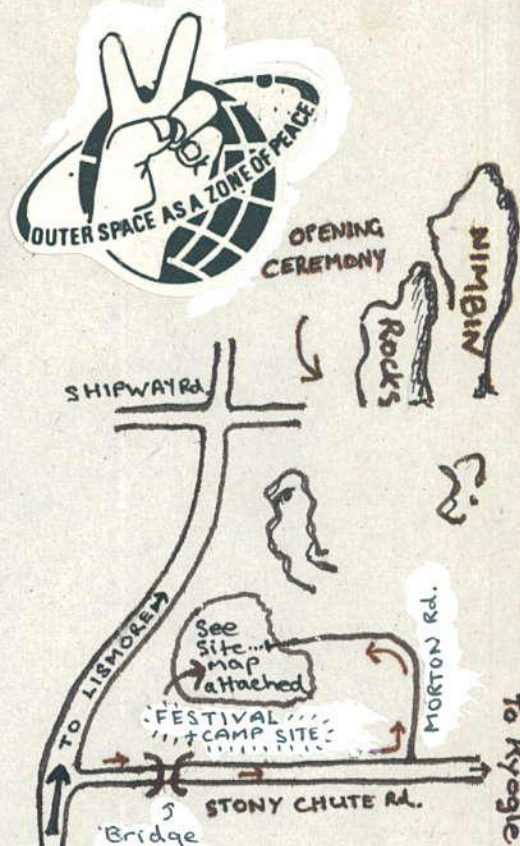 OUTER SPACE AS A ZONE OF PEACE
OPENING
CEREMONY
NIMBIN
ROCKS
SHIPWAY Rd.
TO LISMORE
See
Site
map
attached
FESTIVAL
+ CAMP SITE
MORTON Rd.
To Kyogle
STONY CHUTE Rd.
Bridge